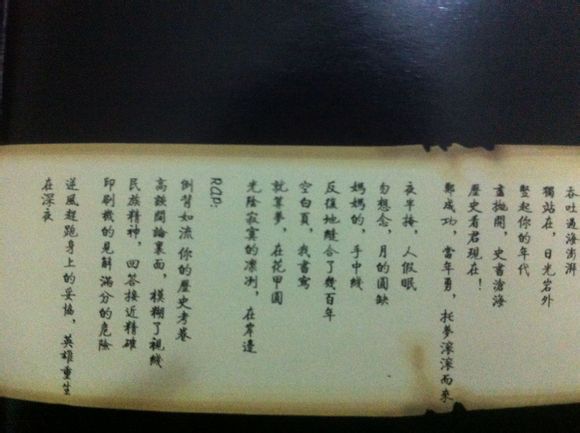 吞吐過海澎湃
獨站在，日光岩外
豎起你的年代
盡拋開，史書滄海
歷史看君現在！
鄭成功，當年勇，托夢滾滾而來
夜半捲，人假眠
勾想念，月的圓缺
媽媽的，手中綫
反復地縫合了幾百年
空白頁，我書寫
就算夢，在花甲圓
光陰寂寞的凛冽，在岸邊
RAP:
倒背如流你的歷史考卷
高談闊論裏面，模糊了視綫
民族精神，回答接近精確
印刷機的見解滿分的危險
逆風起跑身上的妥協，英雄重生
在深夜